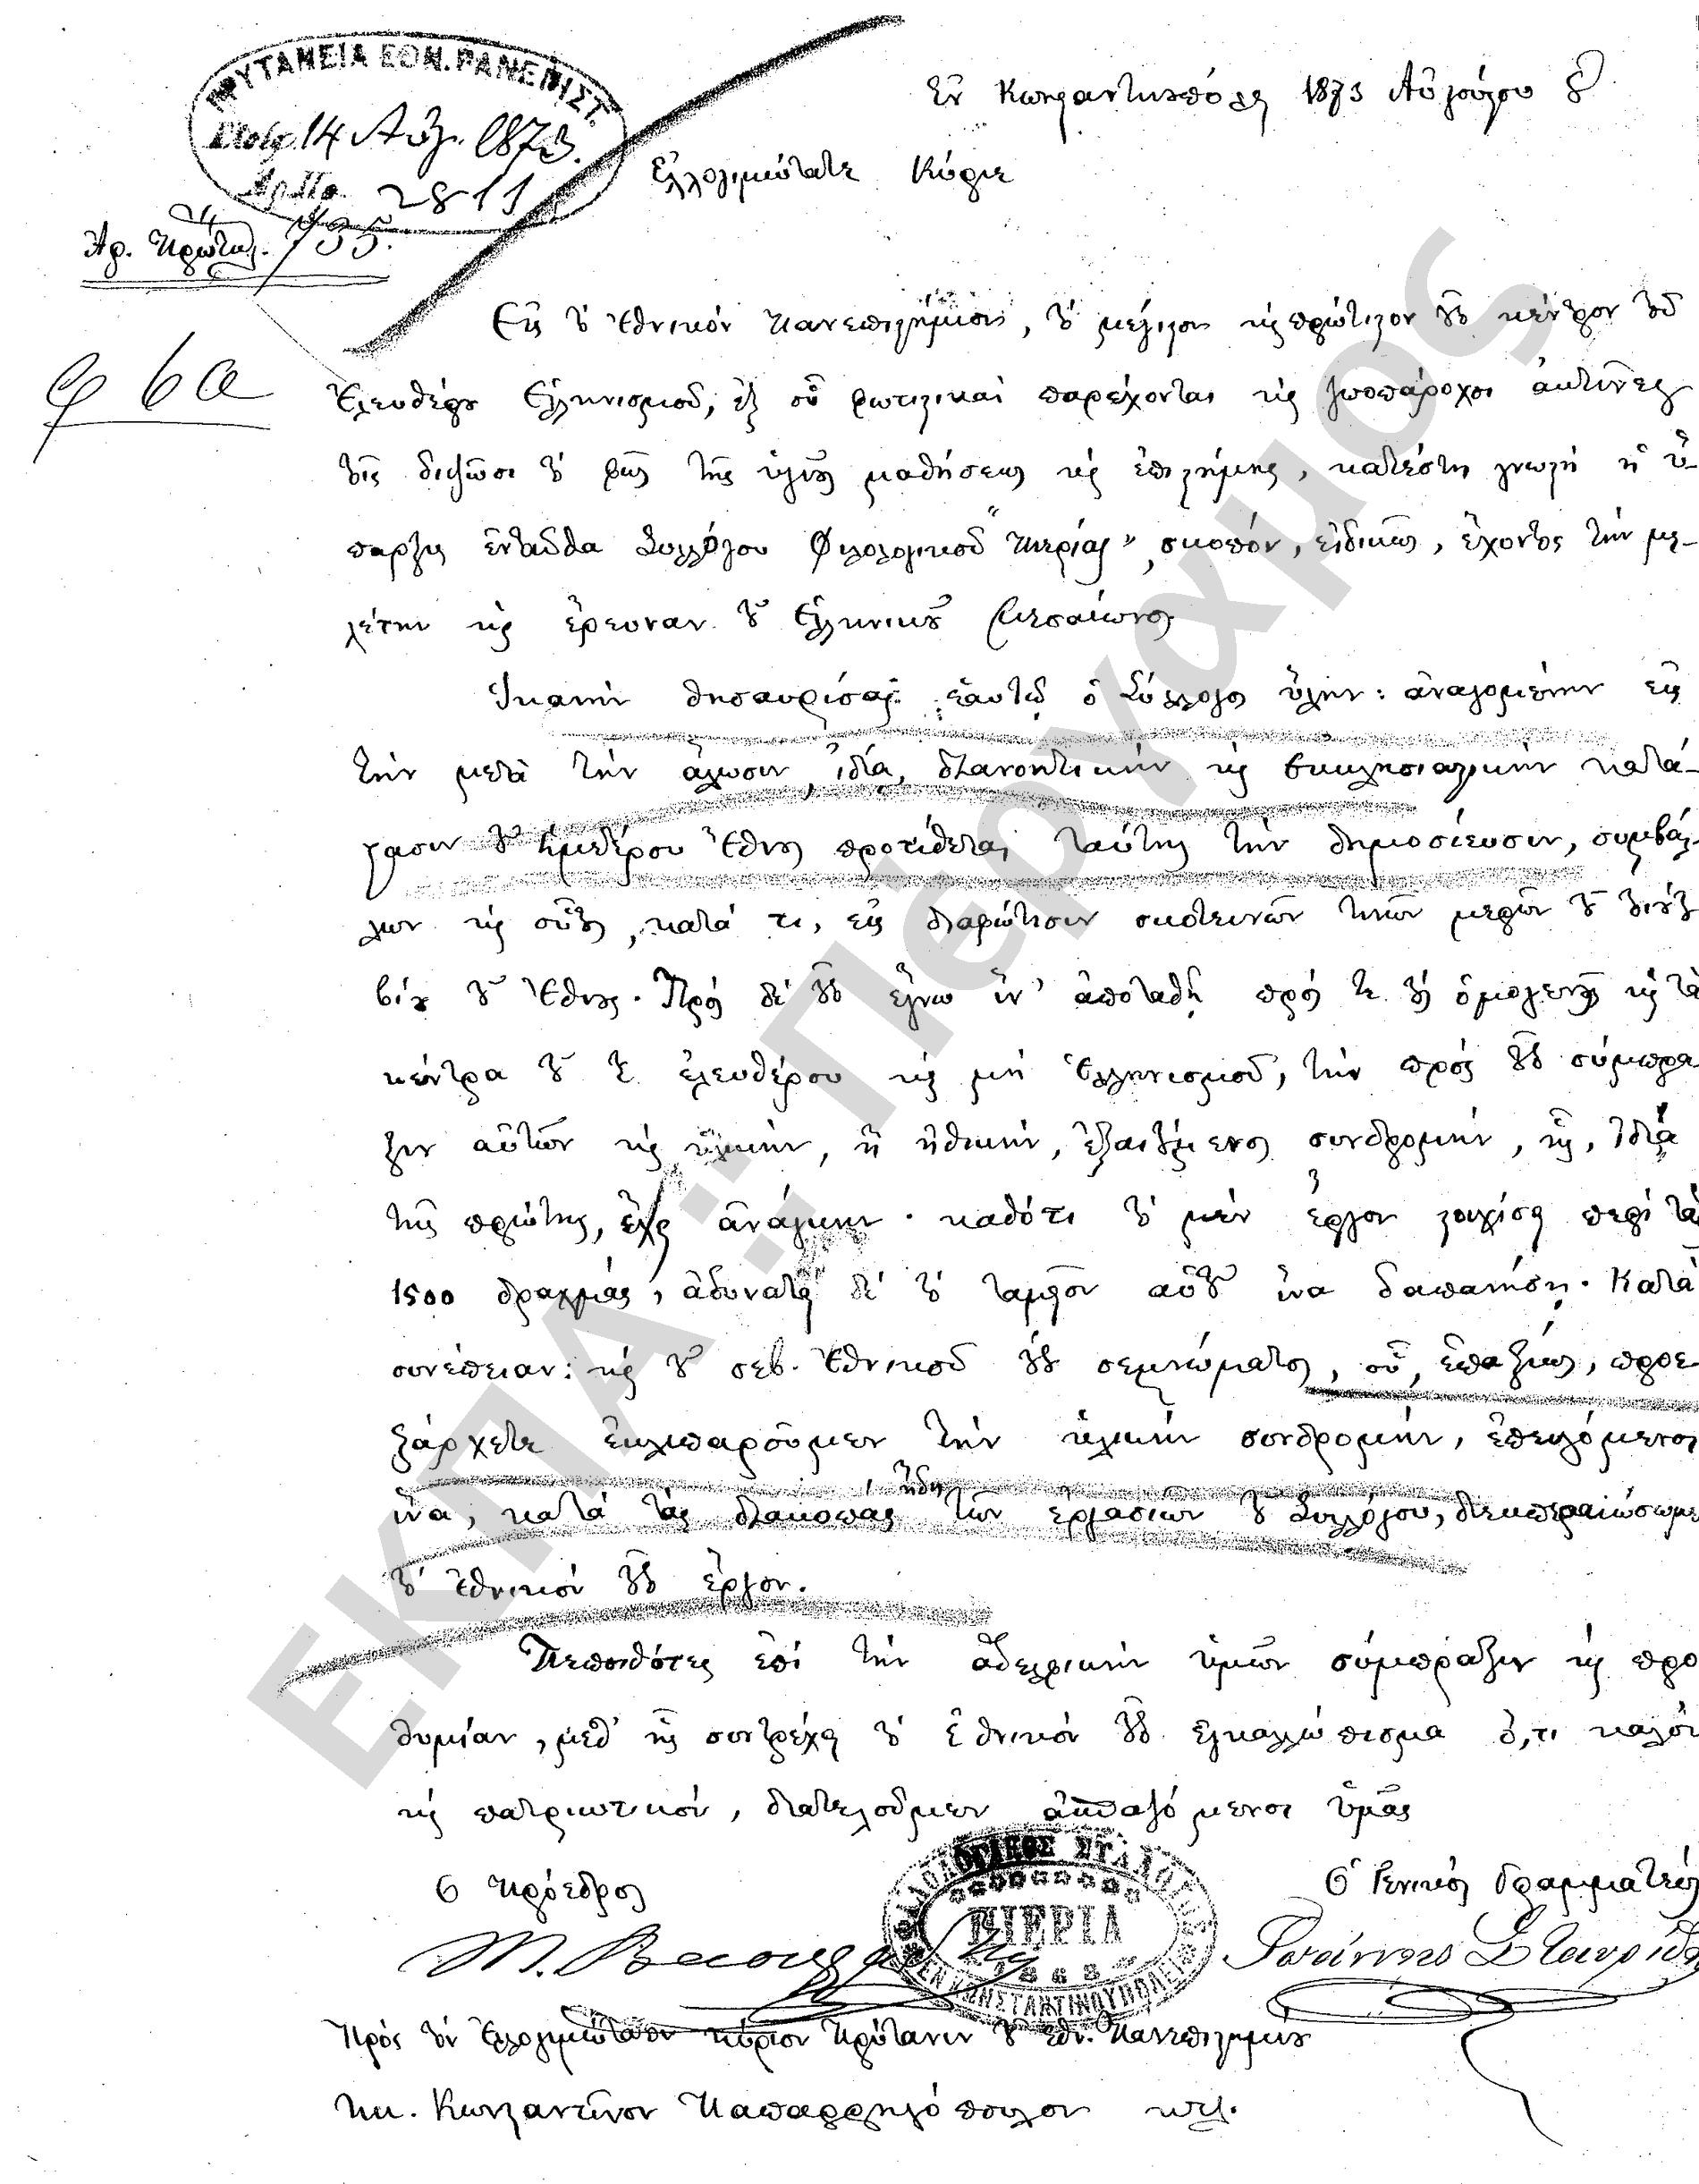 ΠΡΥΤΑΝΕΙΑ ΕΘΝ. ΠΑΝΕΠΙΣΤ.
14 Αὐγ. 1873.
2811
Ἀρ. Πρωτοκ. 735.
φ 6α
Ἐν Κωνσταντινουπόλει 1873 Αὐγούστου
Ἐλλογιμώτατε Κύριε
Εἰς τὸ Ἐθνικὸν Πανεπιστήμιον, τὸ μέγιστον καὶ πρώτιστον τοῦτο κέντρον τοῦ
Ἐλευθέρου Ἑλληνισμοῦ, ἐξ οὗ φωτιστικαὶ παρέχονται καὶ ζωοπάροχοι ἀκτῖνες
τοῖς διψῶσι τὸ φῶς τῆς ὑγιοῦς μαθήσεως καὶ ἐπιστήμης, κατέστη γνωστὴ ἡ ὕ-
παρξις ἐνταῦθα Συλλόγου Φιλολογικοῦ "Πιερίας", σκοπόν, εἰδικῶς, ἔχοντος τὴν με-
λέτην καὶ ἔρευναν τοῦ Ἑλληνικοῦ Μεσαίωνος
Ἱκανὴν θησαυρίσας ἑαυτῷ ὁ Σύλλογος ὕλην: ἀναγομένην εἰς
τὴν μετὰ τὴν ἅλωσιν, ἰδίᾳ, διανοητικὴν καὶ ἐκκλησιαστικὴν κατά-
στασιν τοῦ ἡμετέρου Ἔθνους προτίθεται ταύτης τὴν δημοσίευσιν, συμβάλ-
λων καὶ οὕτω, κατά τι, εἰς διαφώτισιν σκοτεινῶν τινῶν μερῶν τοῦ τούτου
βίου τοῦ Ἔθνους. Πρὸς δὲ τοῦτο ἔγνω ἵν' ἀποταθῇ πρός τε τοὺς ὁμογενεῖς καὶ τὰ
κέντρα τοῦ τε ἐλευθέρου καὶ μὴ Ἑλληνισμοῦ, τὴν πρὸς τοῦτο σύμπρα-
ξιν αὐτῶν καὶ ὑλικήν, ἢ ἠθικήν, ἐξαιτούμενος συνδρομήν, ἧς, ἰδίᾳ
τῆς πρώτης, ἔχει ἀνάγκην· καθότι τὸ μὲν ἔργον στοιχίσει περὶ τὰς
1500 δραχμάς, ἀδυνατεῖ δὲ τὸ ταμεῖον αὐτοῦ ἵνα δαπανήσῃ. Κατὰ
συνέπειαν: καὶ τοῦ σεβ. Ἐθνικοῦ τούτου σεμνώματος, οὗ, ἐπαξίως, προε-
ξάρχετε ἐκλιπαροῦμεν τὴν ὑλικὴν συνδρομήν, ἐπειγόμενοι
ἵνα, κατὰ τὰς διακοπὰς ἤδη τῶν ἐργασιῶν τοῦ Συλλόγου, διεκπεραιώσωμεν
τὸ ἐθνικὸν τοῦτο ἔργον.
Πεποιθότες ἐπὶ τὴν ἀδελφικὴν ὑμῶν σύμπραξιν καὶ προ
θυμίαν, μεθ' ἧς συντρέχει τὸ ἐθνικὸν τοῦτο ἐγκαλλώπισμα ὅ,τι καλὸν
καὶ πατριωτικόν, διατελοῦμεν ἀσπαζόμενοι ὑμᾶς
Ὁ Πρόεδρος
Ὁ Γενικὸς Γραμματεὺς
Ἰωάννης Σταυρίδης
ΦΙΛΟΛΟΓΙΚΟΣ ΣΥΛΛΟΓΟΣ
ΠΙΕΡΙΑ
1868
ΕΝ ΚΩΝΣΤΑΝΤΙΝΟΥΠΟΛΕΙ
Πρὸς τὸν Ἐλλογιμώτατον κύριον Πρύτανιν τοῦ Ἐθν. Πανεπιστημίου
Κον. Κωνσταντῖνον Παπαρρηγόπουλον κτλ.
ΕΚΠΑ: Πέργαμος